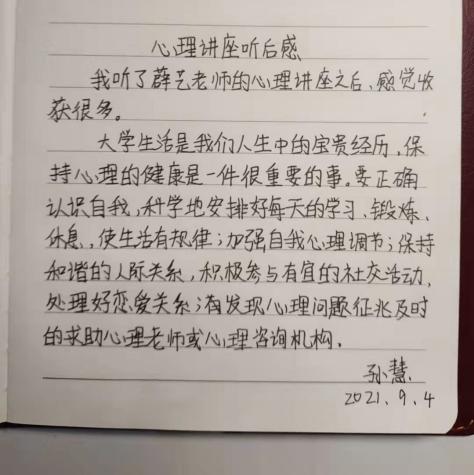 心理讲座听后感
我听了薛艺老师的心理讲座之后、感觉收
获很多。
大学生活是我们人生中的宝贵经历，保
持心理的健康是一件很重要的事。要正确
认识自我，科学地安排好每天的学习、锻炼、
休息，使生活有规律；加强自我心理调节；保持
和谐的人际关系，积极参与有宜的社交活动，
处理好恋爱关系；有发现心理问题征兆及时
的求助心理老师或心理咨询机构。
孙慧
2021.9.4